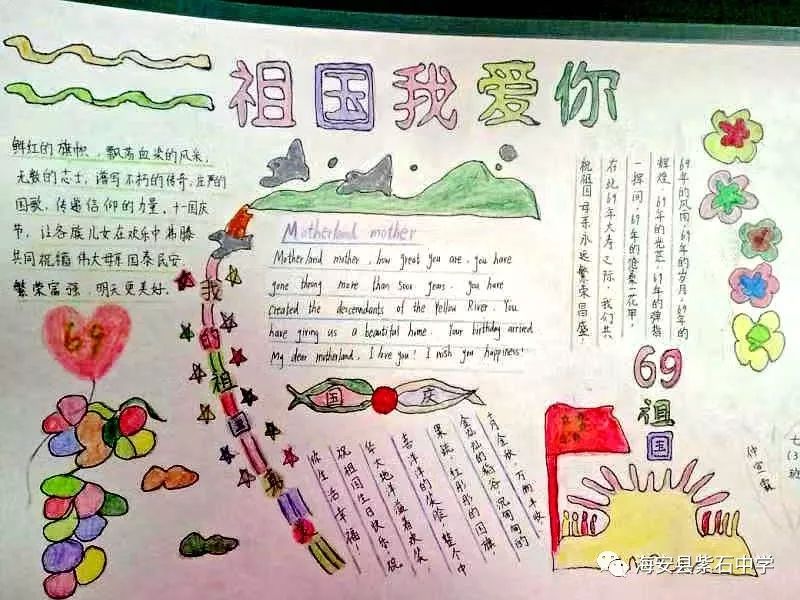 祖国我爱你
鲜红的旗帜，飘荡血染的风采，
无数的志士，谱写不朽的传奇，庄严的
国歌，传递信仰的力量，十一国庆
节，让各族儿女在欢乐中沸腾
共同祝福伟大母亲国泰民安
繁荣富强，明天更美好
69
Motherland mother
Motherland mother, how great you are, you have
gone throug more than 5000 years. you have
created the descendants of the Yellow River. You
have giving us a beautiful home. Your birthday arrived
My dear motherland, I love you! I wish you happiness!
69年的风雨，69年的岁月，69年的
辉煌，69年的光芒，69年的弹指
一挥间，69年的沧桑一花甲，
在此69年大寿之际，我们共
祝祖国母亲永远繁荣昌盛！
我的祖国
国庆
十月金秋，万物丰收
金灿灿的稻谷，沉甸甸的
果实，红彤彤的国旗
喜洋洋的笑脸，整个中
华大地洋溢着欢笑
祝祖国生日快乐，祝
你生活幸福！
69
祖
国
七
(3)
班
海安县紫石中学